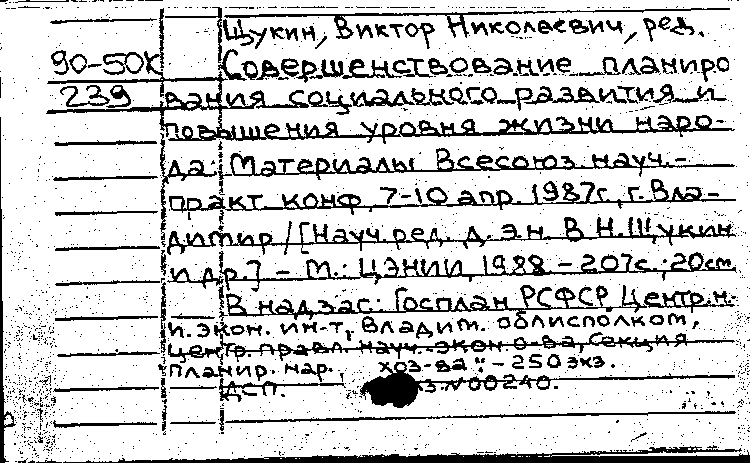 Щукин, Виктор Николаевич, ред.
90-50К Совершенствование планиро
239 вания социального развития и
повышения уровня жизни наро-
да: Материалы Всесоюз. науч.-
практ. конф., 7-10 апр. 1987г., г. Вла-
димир / [Науч. ред. д. э. н. В. Н. Щукин
и др.] - М.: ЦЭНИИ, 1988 - 207с.; 20см.
В надзаг: Госплан РСФСР. Центр. н.-
и. экон. ин-т, Владим. облисполком,
Центр. правл. науч.-экон. о-ва, Секция
"Планир. нар. хоз-ва". - 250 экз.
ДСП. N 00240.